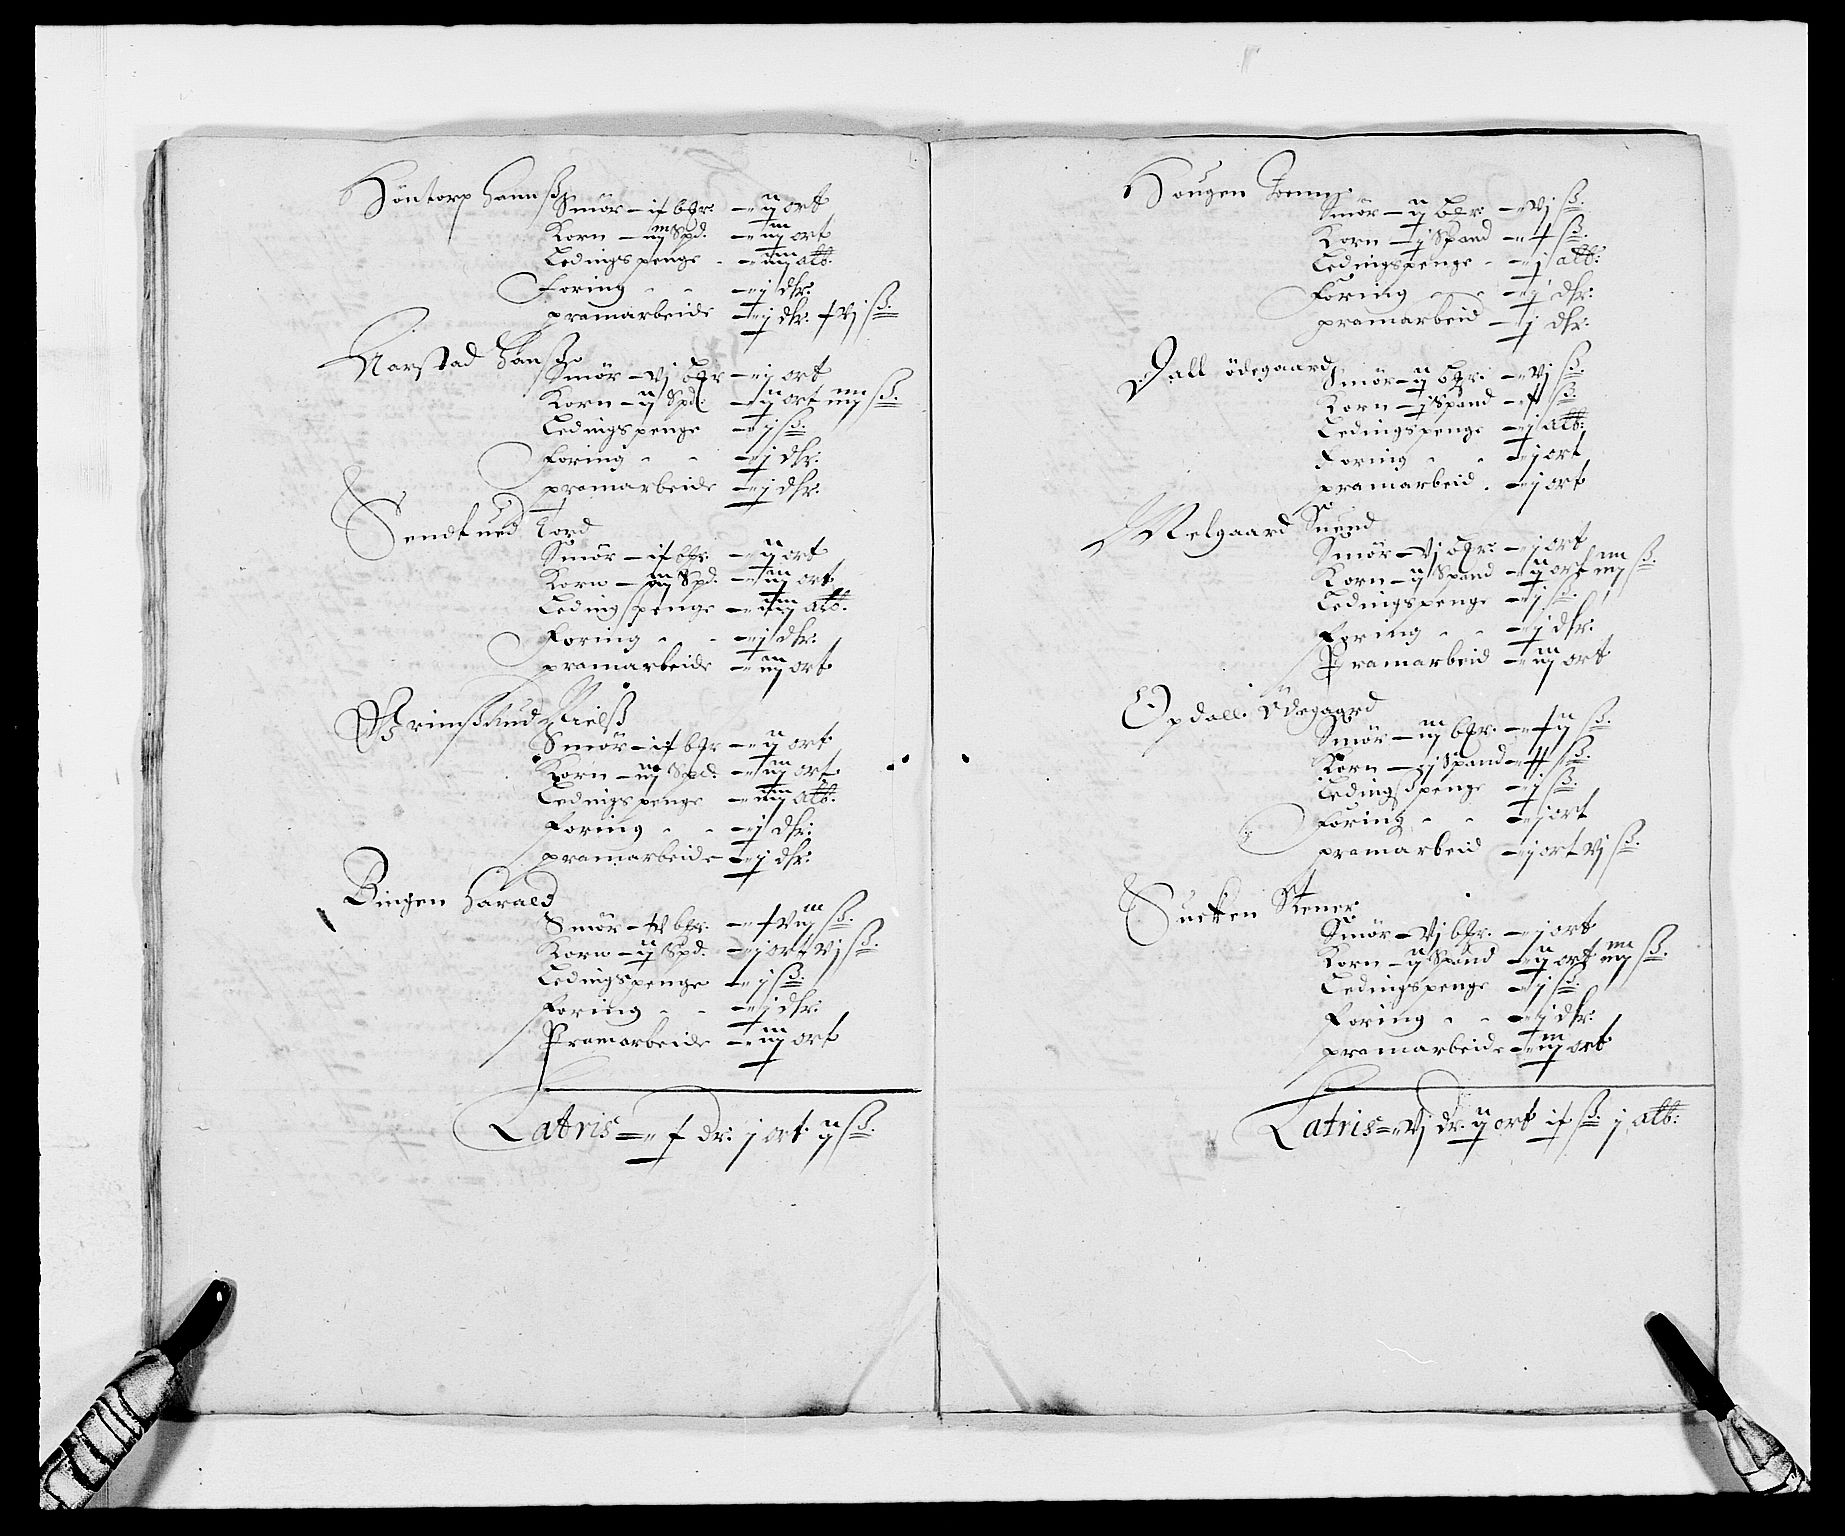 Höntorp Hanns
Smör – ix bpr: – ij ort
Korn – iij Spd. – iij ort
Ledingspenge – iiij alb:
Foring – j dlr:
pramarbeide – j dlr: – xvj ß.
Narstad Hans
Smör – vj bpr – j ort
Korn – ij Spd: – ij ort iiij ß.
Ledingspenge – j ß.
Foring – j dlr:
pramarbeide – j dlr:
Sendtued Tord
Smör – ix bpr. – ij ort
Korn – iij Spd. – iij ort
Ledingspenge – iiij alb:
Foring – j dlr:
pramarbeide – iij ort
Grimsstrud Nielß
Smör – ix bpr – ij ort
Korn – iij Spd: – iij ort
Ledingspenge – iiij alb:
Foring – j dlr:
pramarbeide – j dlr:
Ringen Harald
Smör – iv bpr. – xviij ß.
Korn – ij Spd. – j ort vj ß.
Ledingspenge – j ß.
Foring – j dlr:
Pramarbeide – iij ort
Latris – x dr: j ort ij ß.
Hougen
Smör – ij bpr: – vj ß.
Korn – j Spand – x ß.
Ledingspenge – j alb:
Foring – j dlr:
pramarbeid – j dlr:
Dall ödegaard
Smör – ij bpr: – vj ß.
Korn – j Spand – x ß.
Ledingspenge – j alb:
Foring – j ort
pramarbeid – j ort
Melgaard Suend
Smör – vj bpr: – j ort
Korn – ij Spand – ij ort iiij ß.
Ledingspenge – j ß.
Foring – j dlr:
Pramarbeid – iij ort
Opdall Ödegaard
Smör – iiij bpr. – xij ß.
Korn – j Spand – xx ß.
Ledingspenge – j ß.
Foring – j ort
pramarbeid – j ort vj ß.
Sucken Stener
Smör – vj bpr. – j ort
Korn – ij Spand – ij ort iiij ß.
Ledingspenge – j ß.
Foring – j dlr:
pramarbeide – iij ort
Latris – vj dr. ij ort ix ß j alb: